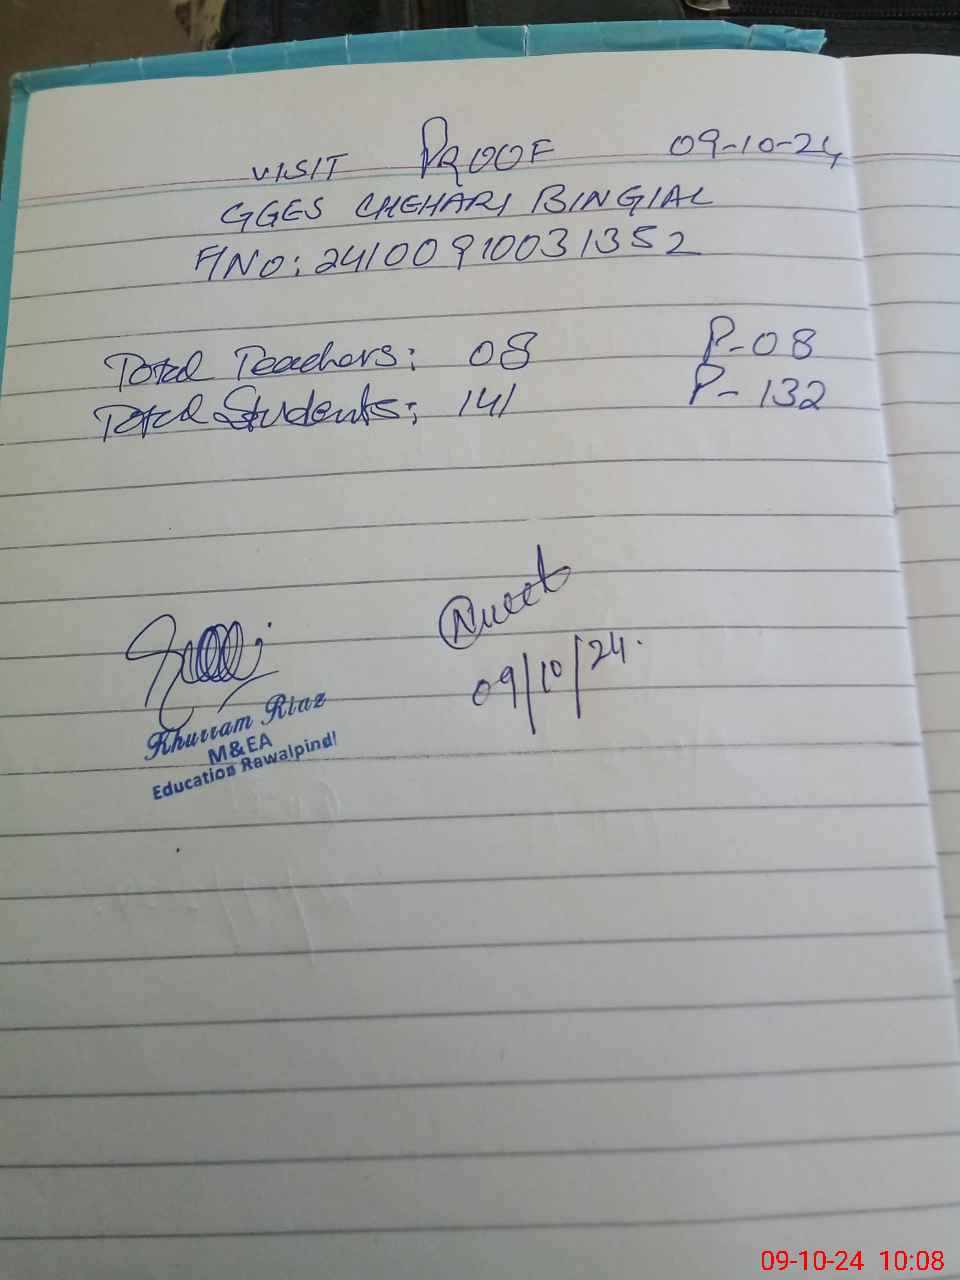 VISIT PROOF 09-10-24
GGES CHEHARI BINGIAL
F/NO: 24100910031352
Total Teachers: 08 P-08
Total Students: 141 P-132
09/10/24.
Khurram Riaz
M&EA
Education Rawalpindi
09-10-24 10:08